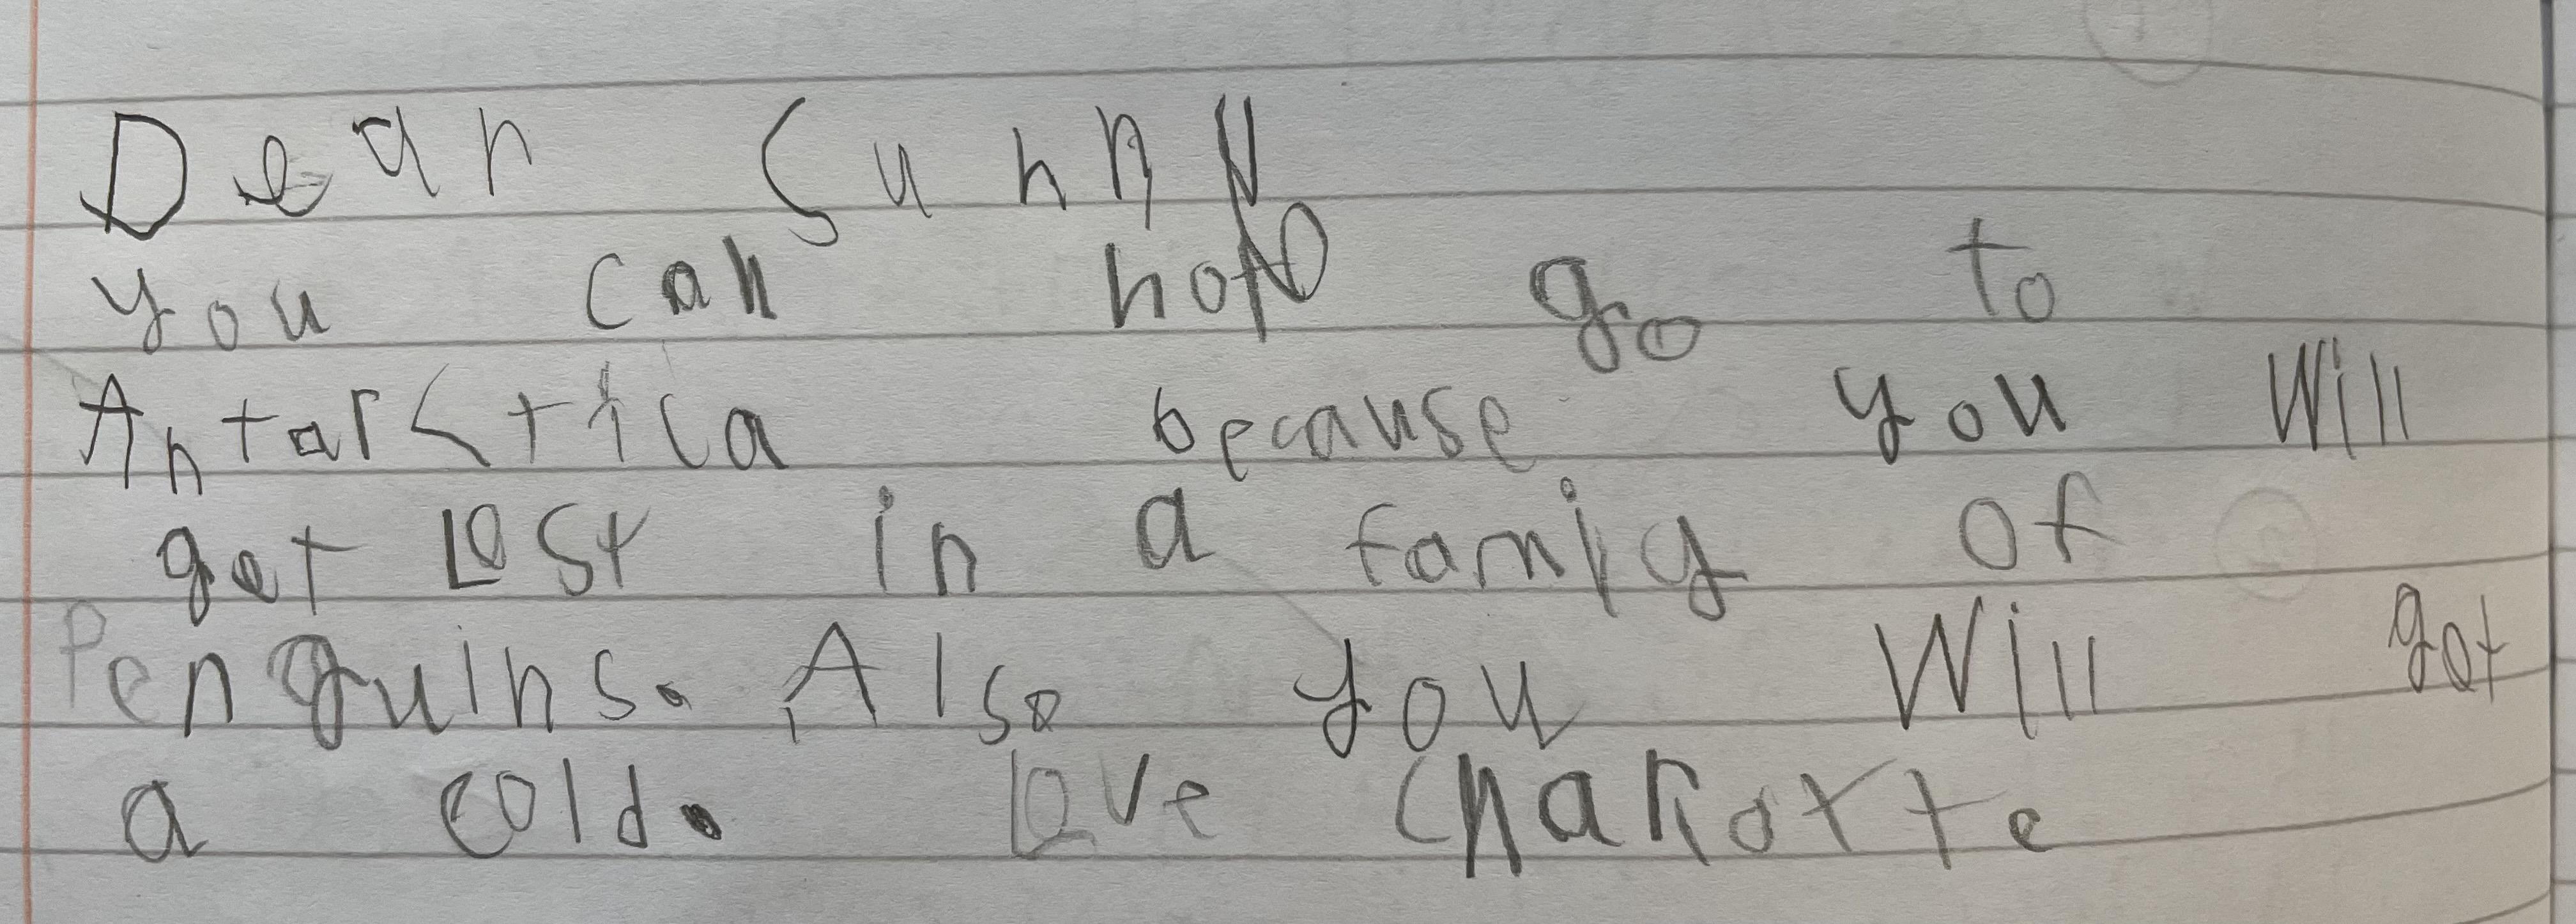 Dear Sunny
you can not go to
Antarctica because you Will
get Lost in a family of
Penguins. Also you Will get
a cold. Love Charlotte